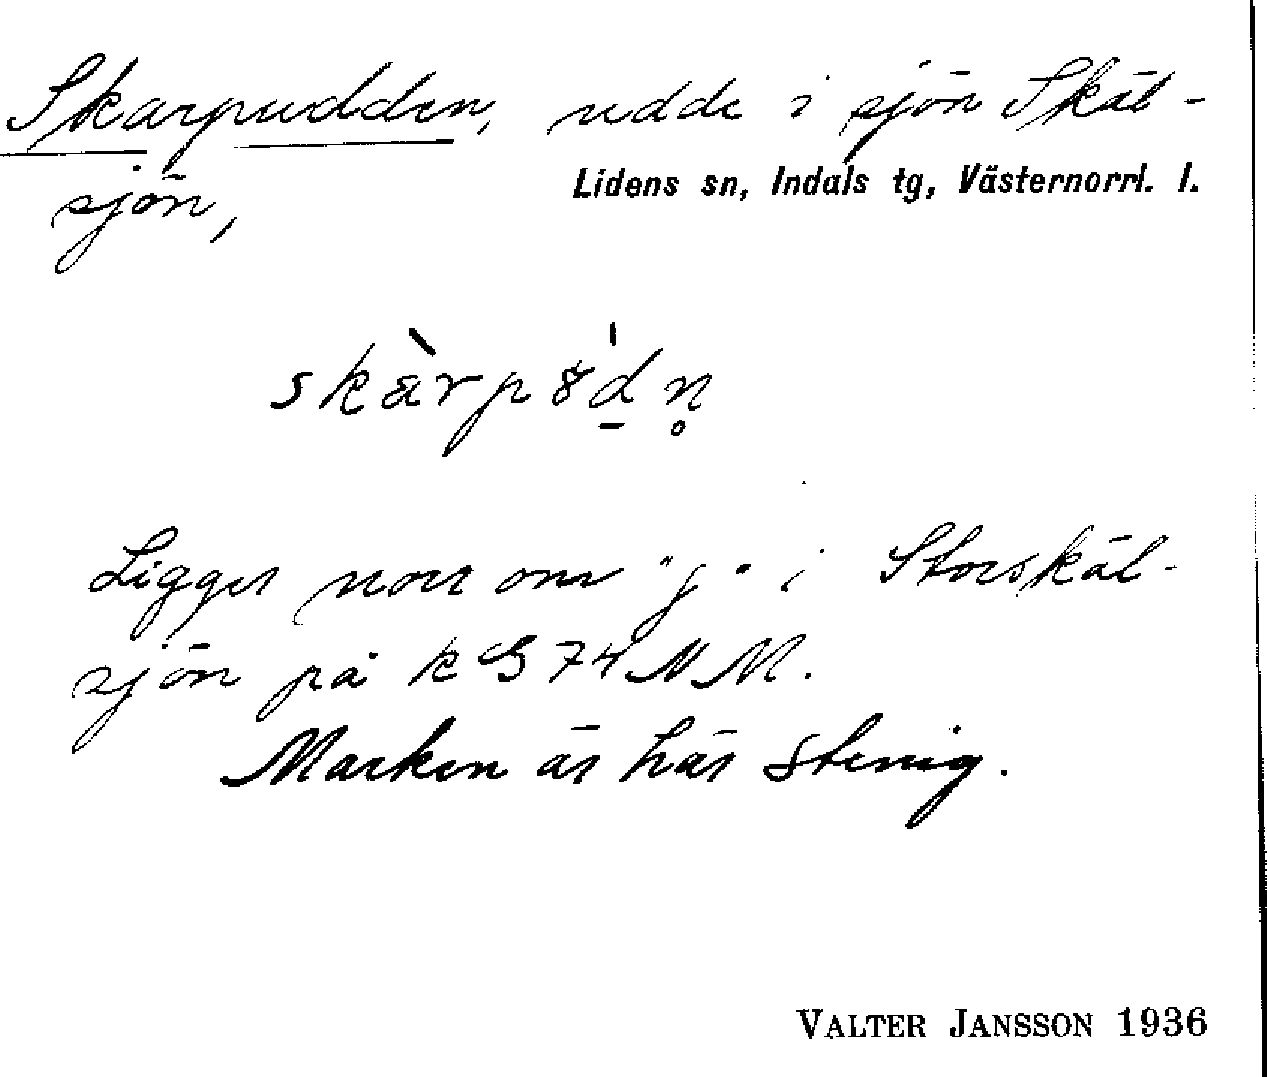 Skarpudden, udde i sjön Skäl-
sjön,
Lidens sn, Indals tg, Västernorrl. l.
Ligger norr om "j" i Storskäl-
sjön på k G 74 N M.
Marken är här stenig.
VALTER JANSSON 1936